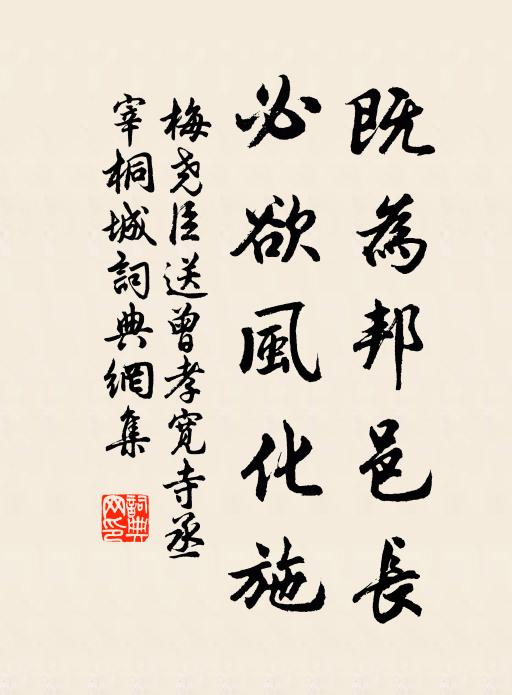 既為邦邑長
必欲風化施
梅尧臣送曾孝寬寺丞
宰桐城詞典網集
詞典
网印